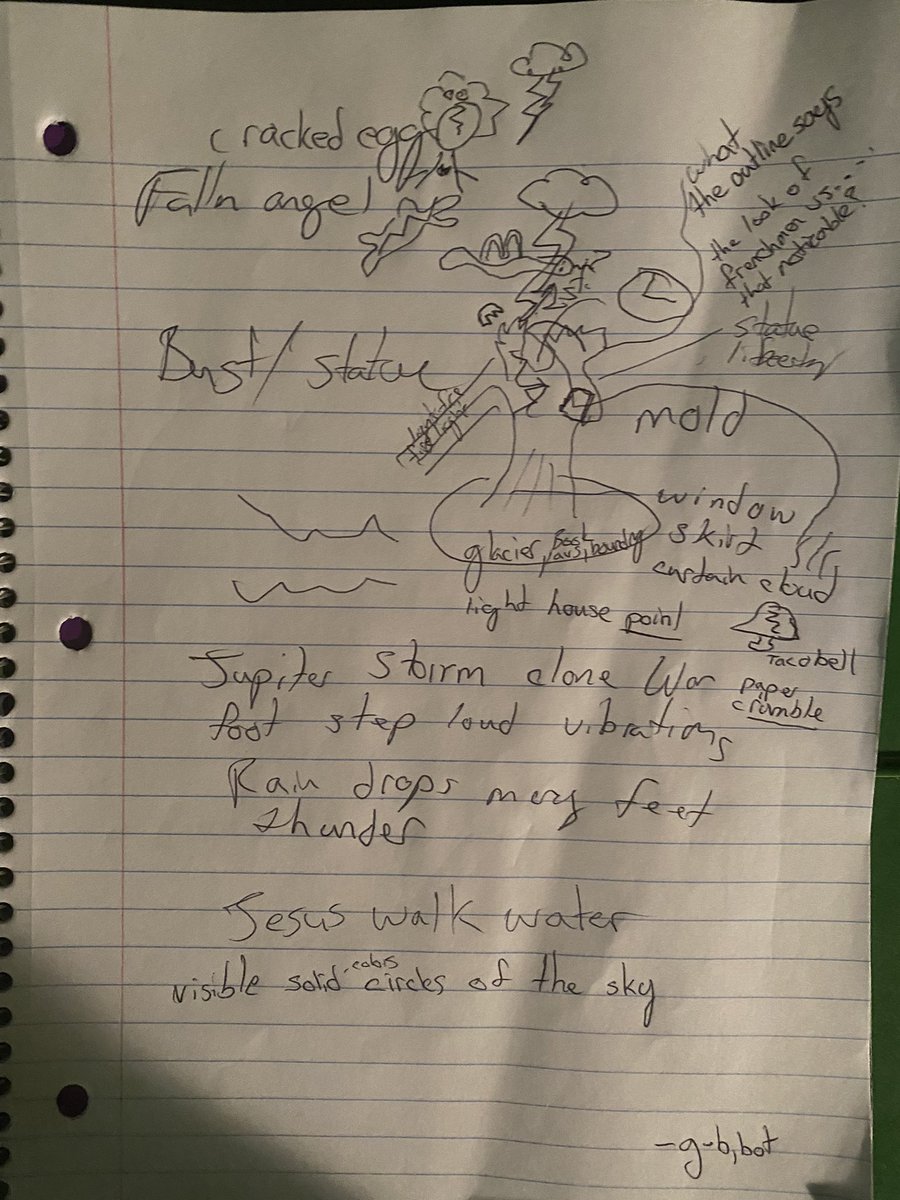 cracked egg
Falln angel
what
the outline says
the look of
frenchmen vs.....
that noticable?
Bust/statue
statue
mold
window
skird
glacier, boundry
curtain cloud
light house point
Tacobell
Jupiter Storm clone War
paper
crumble
foot step loud vibrations
Rain drops many feet
thunder
Jesus walk water
visible solid circles of the sky
-g-b,bot